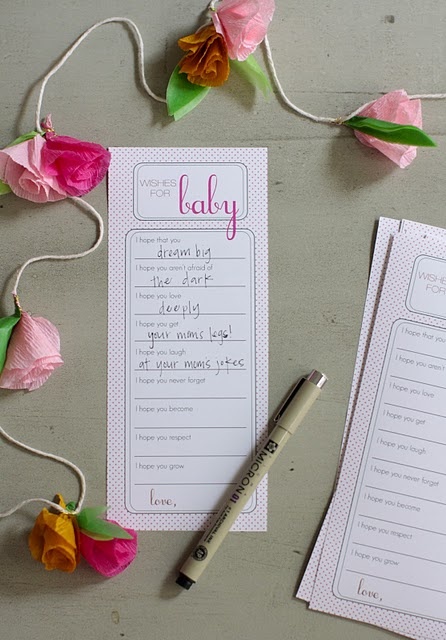 WISHES
FOR
baby
I hope that you
dream big
I hope you aren't afraid of
the dark
I hope you love
deeply
I hope you get
your mom's legs!
I hope you laugh
at your mom's jokes
I hope you never forget
I hope you become
I hope you respect
I hope you grow
love,
MICRON 01
WISHES
FOR
I hope that you
I hope you aren't
I hope you love
I hope you get
I hope you laugh
I hope you never forget
I hope you become
I hope you respect
I hope you grow
love,